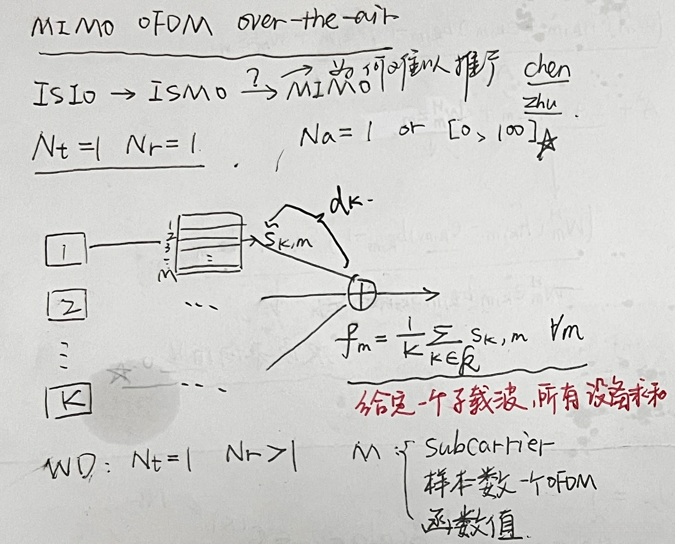 MIMO OFDM over-the-air
ISIO → ISMO →? MIMO 为何难以推广 chen
zhu.
Nt=1 Nr=1. Na=1 or [0, 100]☆
dk.
1 1 2 3 ⋮ M s̃k,m
2 ...
⋮
K ...
fm = 1/K ∑k∈𝒦 sk,m ∀m
给定一个子载波,所有设备求和
WD: Nt=1 Nr>1 M: { subcarrier
样本数一个OFDM
函数值.